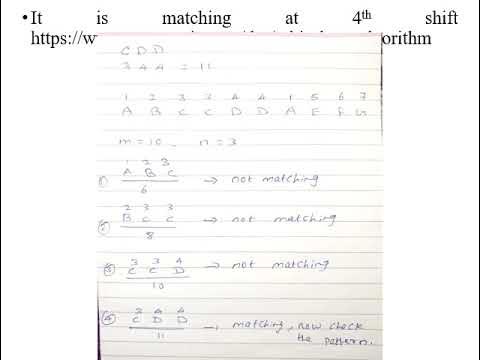 •It is matching at 4th shift
https://w
orithm
C D D
3 4 4 = 11
1 2 3 3 4 4 1 5 6 7
A B C C D D A E F G
m=10 n=3
1 2 3
① A B C → not matching
6
2 3 3
② B C C → not matching
8
3 3 4
③ C C D → not matching
10
3 4 4
④ C D D → matching, now check
11 the pattern.